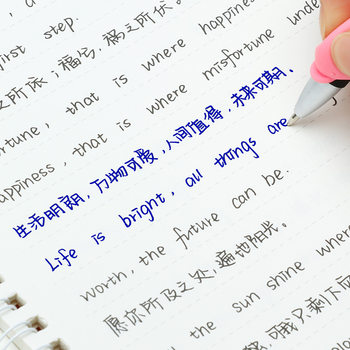 first step.
之所依；福兮，祸之所伏。
that is where happiness
fortune, that is where misfortune
happiness, that is where misfortune under
生活明朗，万物可爱，人间值得，未来可期。
Life is bright, all things are
worth, the future can be.
愿你所及之处，遍地阳光。
the sun shine where
我只剩下